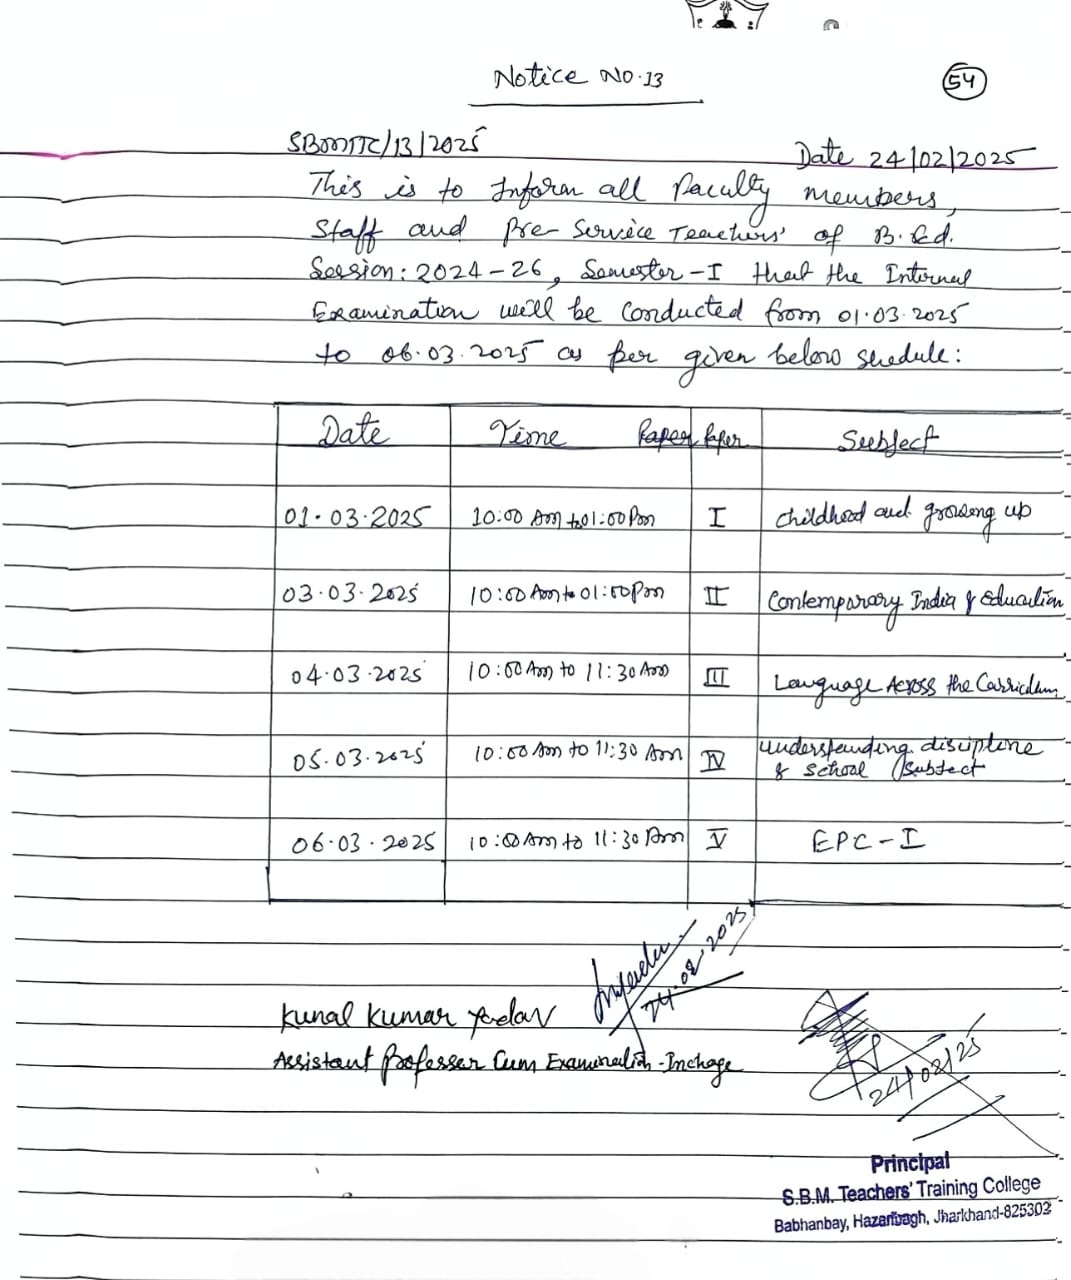 Notice No.13
54
SBMTTC/13/2025
Date 24/02/2025
This is to Inform all Faculty members,
Staff and Pre-Service Teachers' of B.Ed.
Session: 2024-26, Semester-I that the Internal
Examination will be conducted from 01.03.2025
to 06.03.2025 as per given below shedule:
Date Time Paper Paper Subject
01.03.2025 10:00 Am to 01:00 Pm I Childhood and growing up
03.03.2025 10:00 Am to 01:00 Pm II Contemporary India & Education
04.03.2025 10:00 Am to 11:30 Am III Language Across the Curriculum
05.03.2025 10:00 Am to 11:30 Am IV understanding discipline
& School Subject
06.03.2025 10:00 Am to 11:30 Am V EPC-I
24.02.2025
Kunal Kumar Yadav
Assistant Professor Cum Examination-Inchage
24/02/25
Principal
S.B.M. Teachers' Training College
Babhanbay, Hazaribagh, Jharkhand-825302